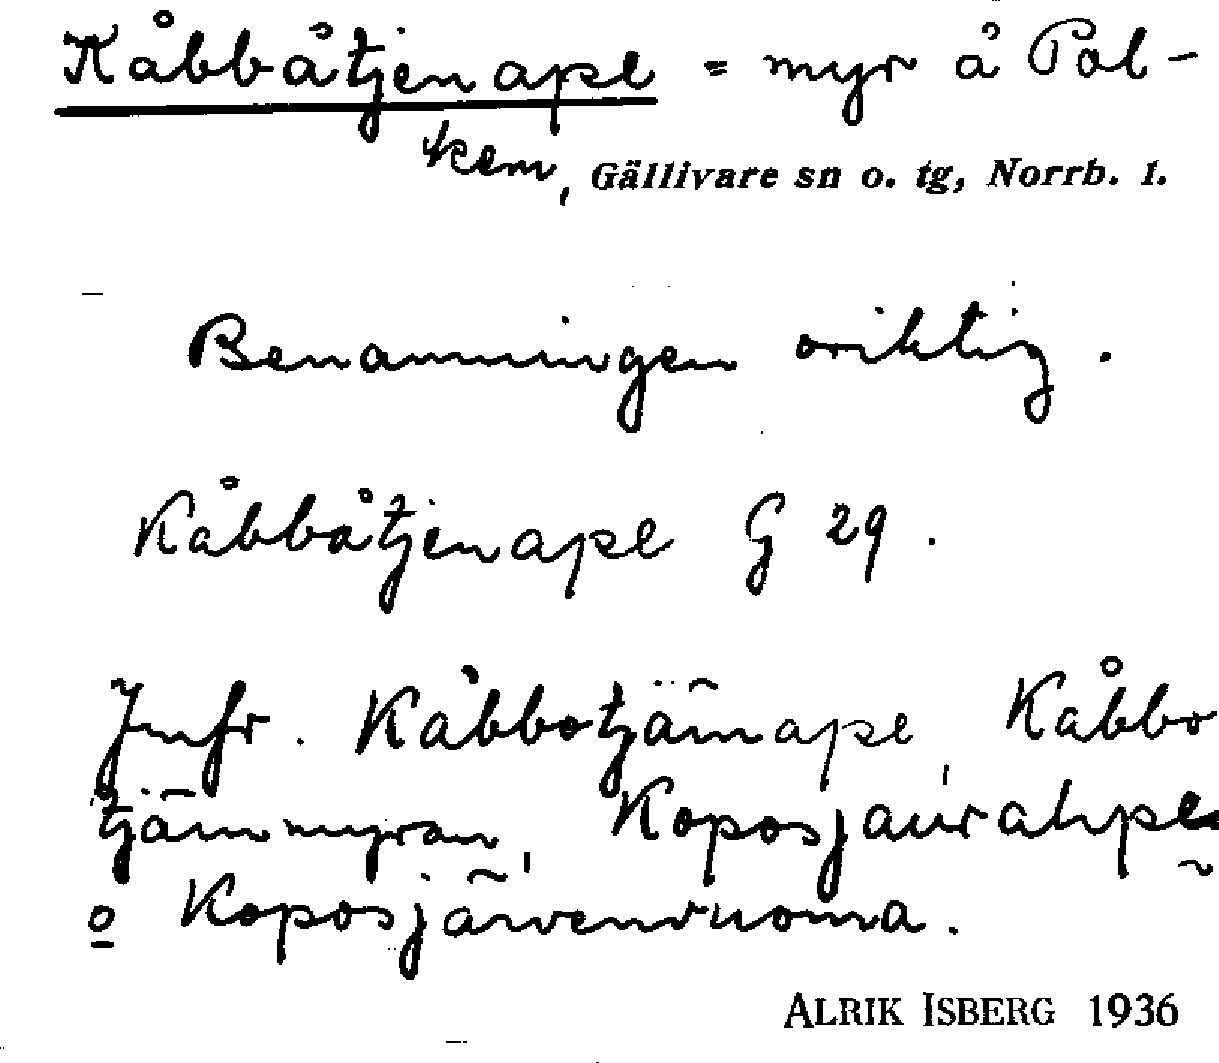 Kåbbåtjenape = myr å Pol-
kem, Gällivare sn o. tg, Norrb. 1.
Benämningen oriktig.
Kåbbåtjenape G 29.
Jmfr. Kåbbotjämape, Kåbbo
tjämmyran, Koposjaurahpe
o Koposjärvenvuoma.
ALRIK ISBERG 1936